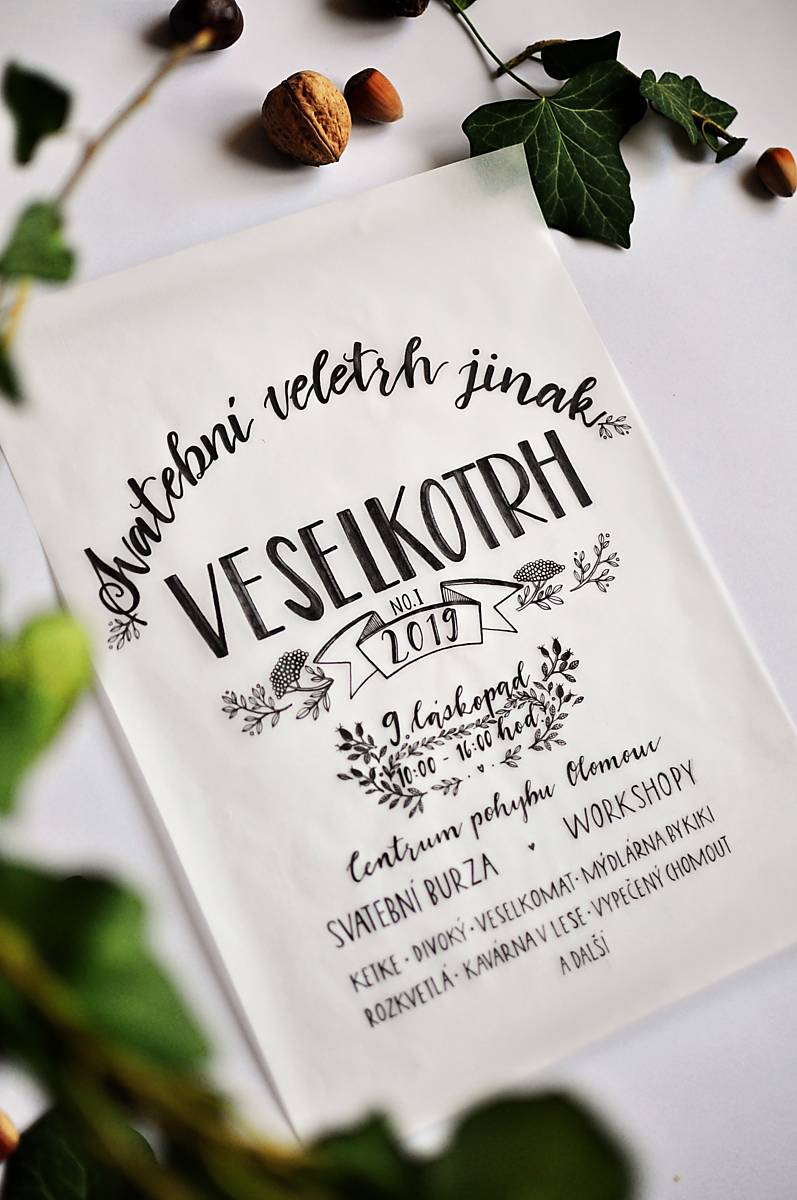 Svatební veletrh jinak
VESELKOTRH
NO.I
2019
9. láskopad
10:00 - 16:00 hod.
Centrum pohybu Olomouc
SVATEBNÍ BURZA ♥ WORKSHOPY
KEIKE · DIVOKÝ · VESELKOMAT · MÝDLÁRNA BY KIKI
ROZKVETLÁ · KAVÁRNA V LESE · VYPEČENÝ CHOMOUT
A DALŠÍ